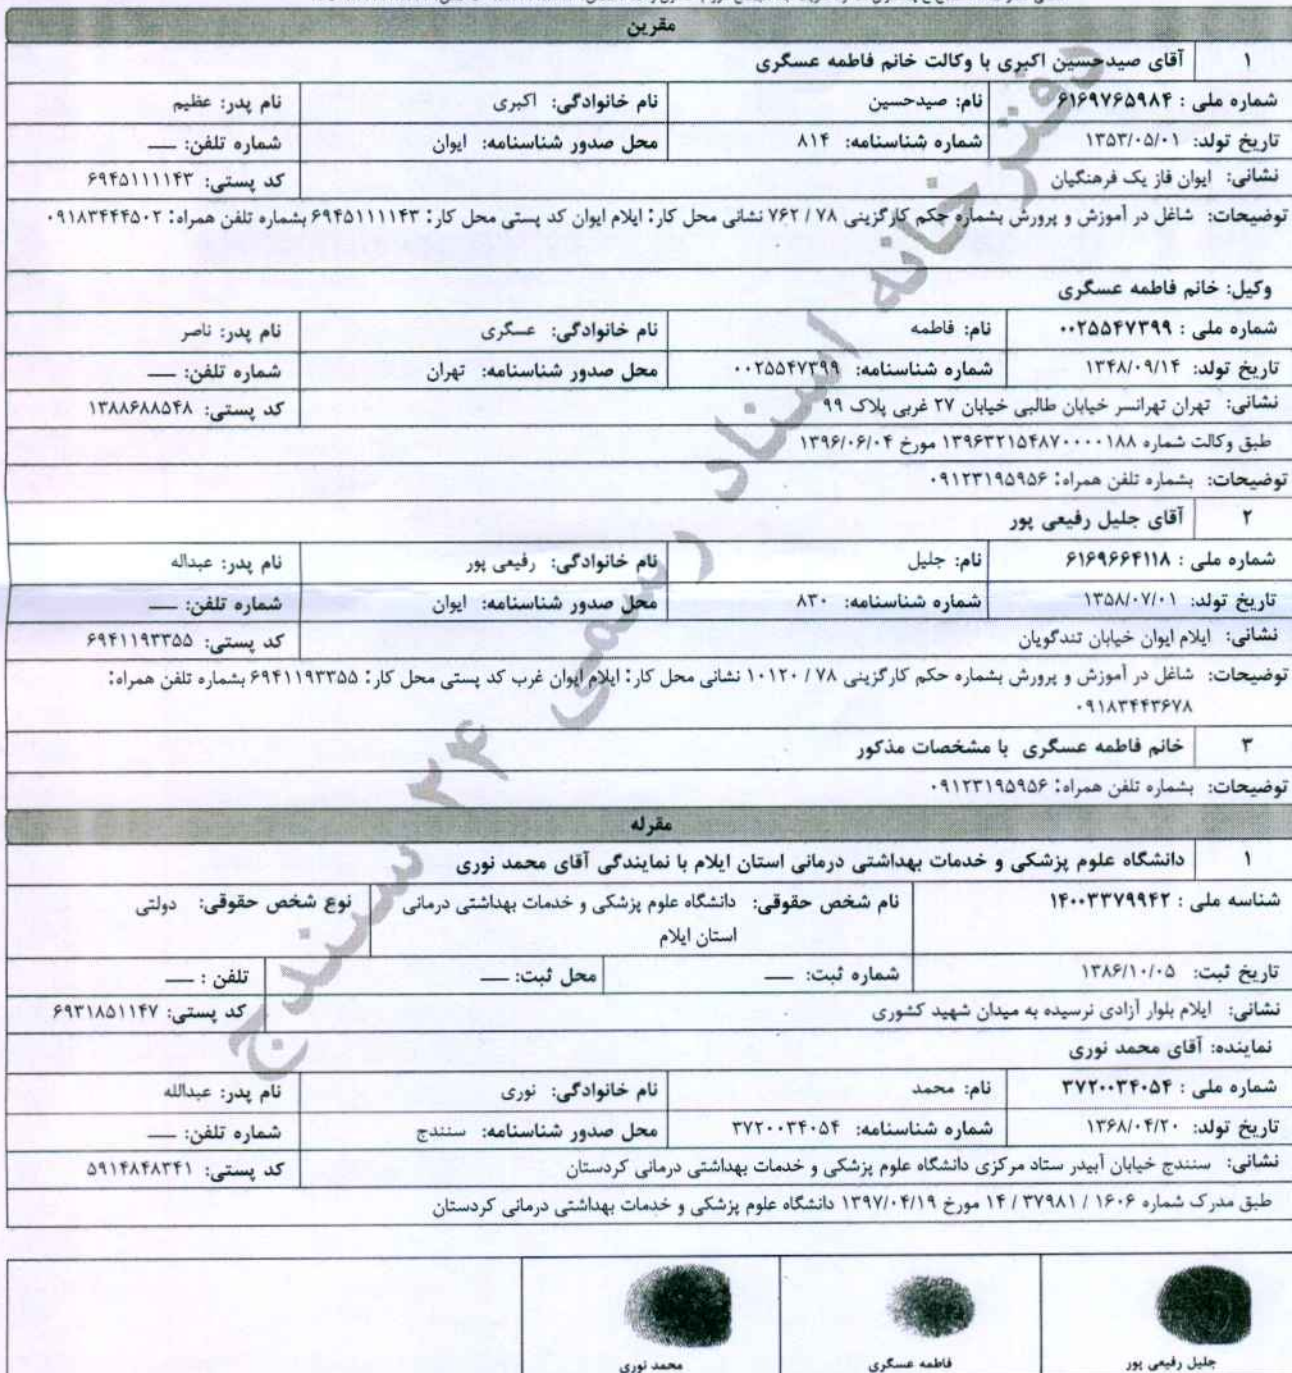 مقرین
۱ آقای صیدحسین اکبری با وکالت خانم فاطمه عسگری
شماره ملی : ۶۱۶۹۷۶۵۹۸۴ نام: صیدحسین نام خانوادگی: اکبری نام پدر: عظیم
تاریخ تولد: ۱۳۵۳/۰۵/۰۱ شماره شناسنامه: ۸۱۴ محل صدور شناسنامه: ایوان شماره تلفن: ---
نشانی: ایوان فاز یک فرهنگیان کد پستی: ۶۹۴۵۱۱۱۱۴۳
توضیحات: شاغل در آموزش و پرورش بشماره حکم کارگزینی ۷۸ / ۷۶۲ نشانی محل کار: ایلام ایوان کد پستی محل کار: ۶۹۴۵۱۱۱۱۴۳ بشماره تلفن همراه: ۰۹۱۸۳۴۴۴۵۰۲
وکیل: خانم فاطمه عسگری
شماره ملی : ۰۰۲۵۵۴۷۳۹۹ نام: فاطمه نام خانوادگی: عسگری نام پدر: ناصر
تاریخ تولد: ۱۳۴۸/۰۹/۱۴ شماره شناسنامه: ۰۰۲۵۵۴۷۳۹۹ محل صدور شناسنامه: تهران شماره تلفن: ---
نشانی: تهران تهرانسر خیابان طالبی خیابان ۲۷ غربی پلاک ۹۹ کد پستی: ۱۳۸۸۶۸۸۵۴۸
طبق وکالت شماره ۱۳۹۶۳۲۱۵۴۸۷۰۰۰۰۱۸۸ مورخ ۱۳۹۶/۰۶/۰۴
توضیحات: بشماره تلفن همراه: ۰۹۱۲۳۱۹۵۹۵۶
۲ آقای جلیل رفیعی پور
شماره ملی : ۶۱۶۹۶۶۴۱۱۸ نام: جلیل نام خانوادگی: رفیعی پور نام پدر: عبداله
تاریخ تولد: ۱۳۵۸/۰۷/۰۱ شماره شناسنامه: ۸۳۰ محل صدور شناسنامه: ایوان شماره تلفن: ---
نشانی: ایلام ایوان خیابان تندگویان کد پستی: ۶۹۴۱۱۹۳۳۵۵
توضیحات: شاغل در آموزش و پرورش بشماره حکم کارگزینی ۷۸ / ۱۰۱۲۰ نشانی محل کار: ایلام ایوان غرب کد پستی محل کار: ۶۹۴۱۱۹۳۳۵۵ بشماره تلفن همراه:
۰۹۱۸۳۴۴۳۶۷۸
۳ خانم فاطمه عسگری با مشخصات مذکور
توضیحات: بشماره تلفن همراه: ۰۹۱۲۳۱۹۵۹۵۶
مقرله
۱ دانشگاه علوم پزشکی و خدمات بهداشتی درمانی استان ایلام با نمایندگی آقای محمد نوری
شناسه ملی : ۱۴۰۰۳۳۷۹۹۴۲ نام شخص حقوقی: دانشگاه علوم پزشکی و خدمات بهداشتی درمانی نوع شخص حقوقی: دولتی
استان ایلام
تاریخ ثبت: ۱۳۸۶/۱۰/۰۵ شماره ثبت: --- محل ثبت: --- تلفن : ---
نشانی: ایلام بلوار آزادی نرسیده به میدان شهید کشوری کد پستی: ۶۹۳۱۸۵۱۱۴۷
نماینده: آقای محمد نوری
شماره ملی : ۳۷۲۰۰۳۴۰۵۴ نام: محمد نام خانوادگی: نوری نام پدر: عبدالله
تاریخ تولد: ۱۳۶۸/۰۴/۲۰ شماره شناسنامه: ۳۷۲۰۰۳۴۰۵۴ محل صدور شناسنامه: سنندج شماره تلفن: ---
نشانی: سنندج خیابان آبیدر ستاد مرکزی دانشگاه علوم پزشکی و خدمات بهداشتی درمانی کردستان کد پستی: ۵۹۱۴۸۴۸۳۴۱
طبق مدرک شماره ۱۶۰۶ / ۳۷۹۸۱ / ۱۴ مورخ ۱۳۹۷/۰۴/۱۹ دانشگاه علوم پزشکی و خدمات بهداشتی درمانی کردستان
جلیل رفیعی پور فاطمه عسگری محمد نوری
دفترخانه اسناد رسمی ۲۴ سنندج